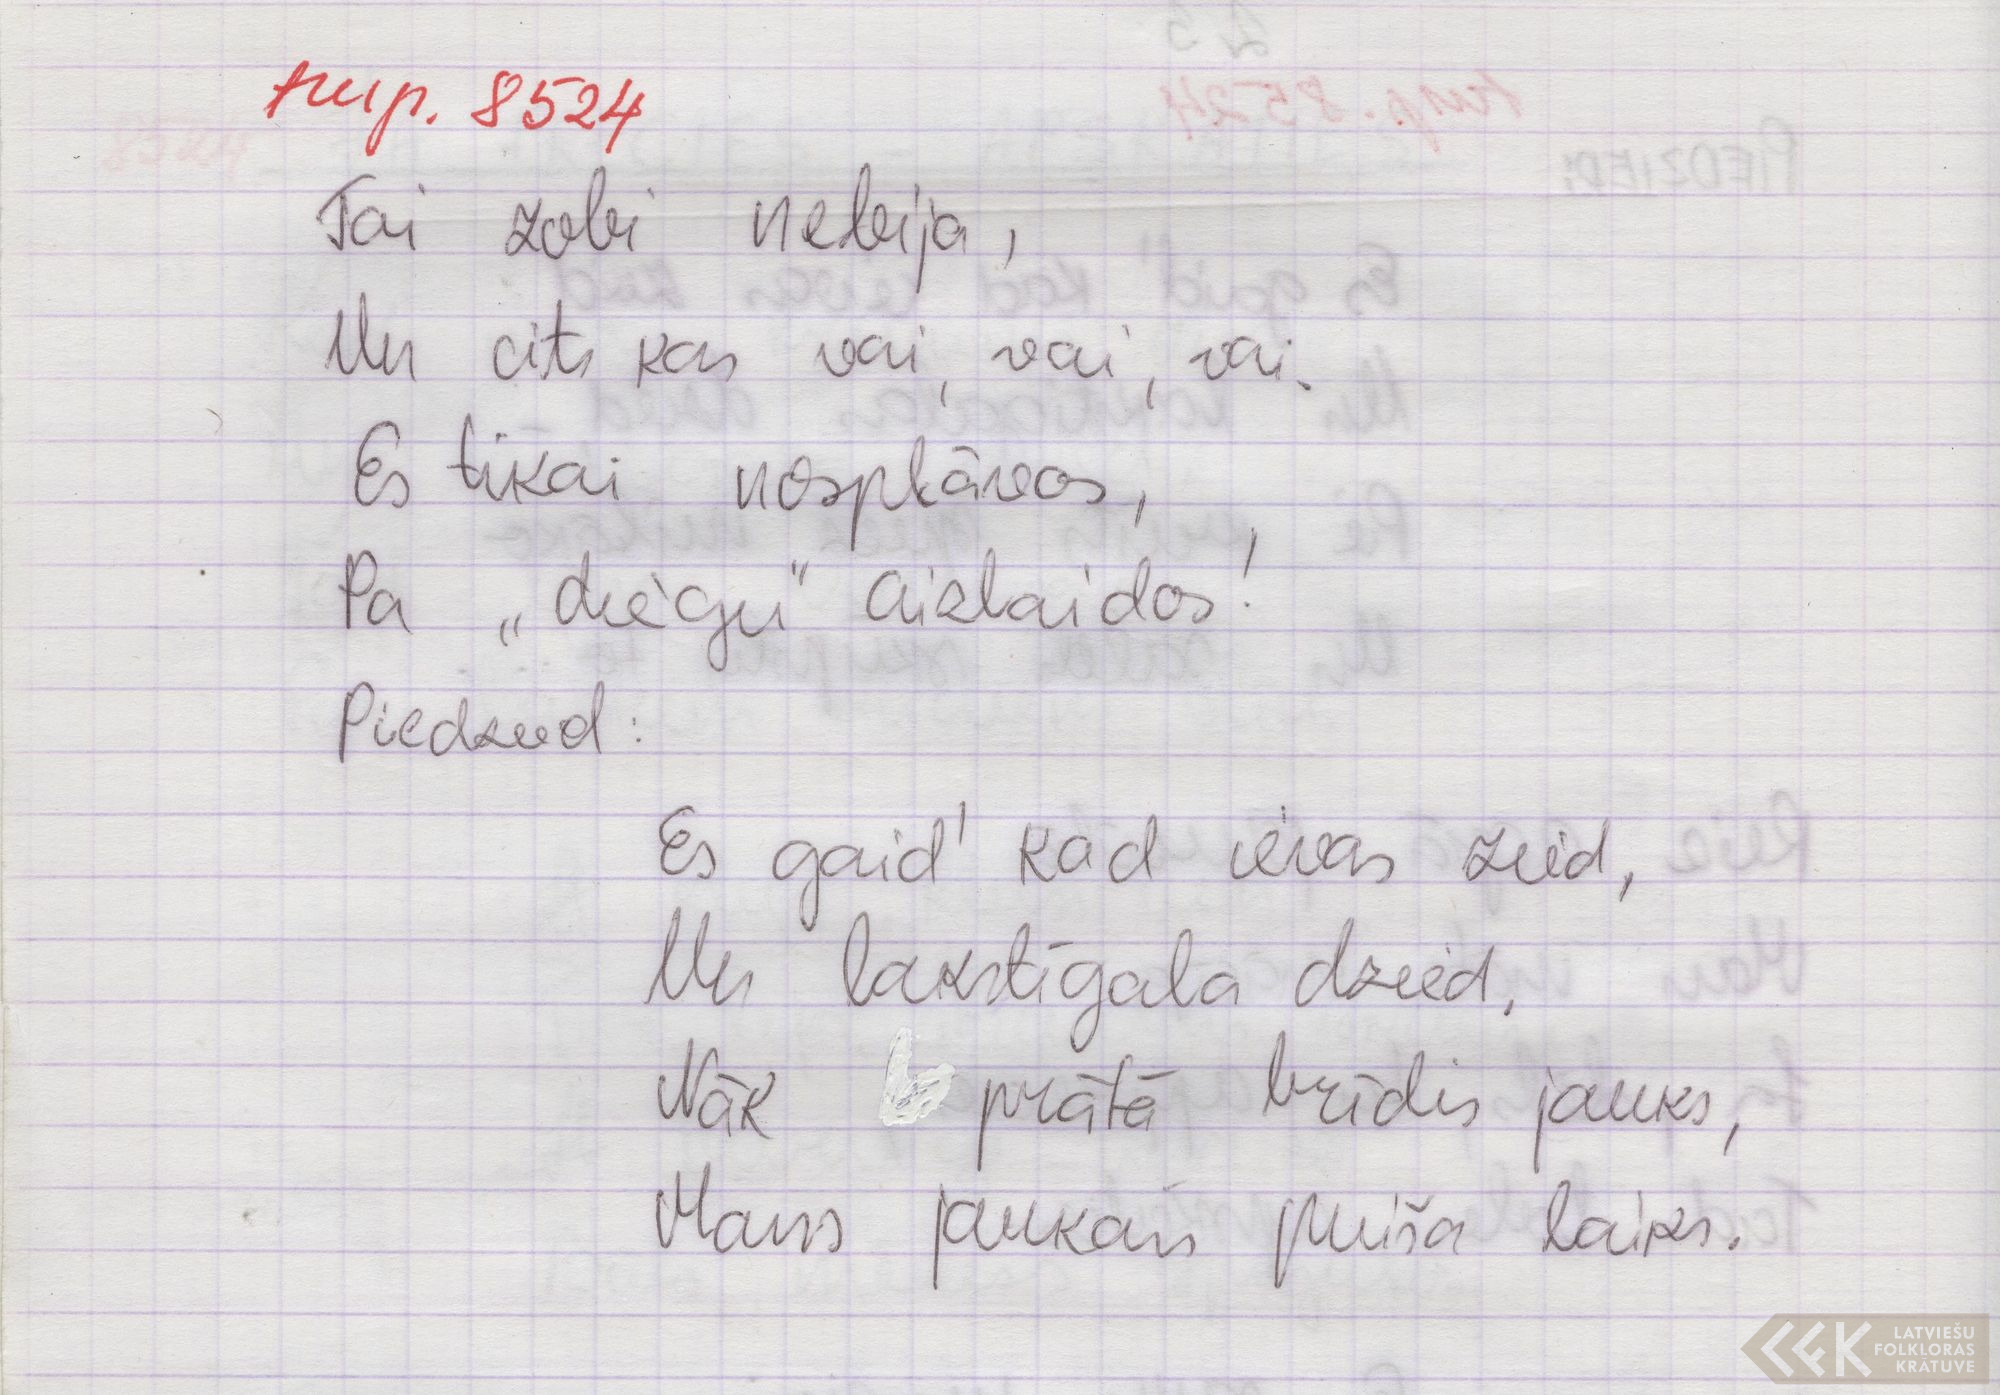 turp. 8524
Tai zobi nebija,
Un cits kas vai, vai, vai.
Es tikai nospļāvos,
Pa „diegu" aizlaidos!
Piedzied:
Es gaid' kad ievas zied,
Un lakstīgala dzied,
Nāk prātā brīdis jauks,
Mans jaukais puiša laiks.
LATVIEŠU
FOLKLORAS
KRĀTUVE